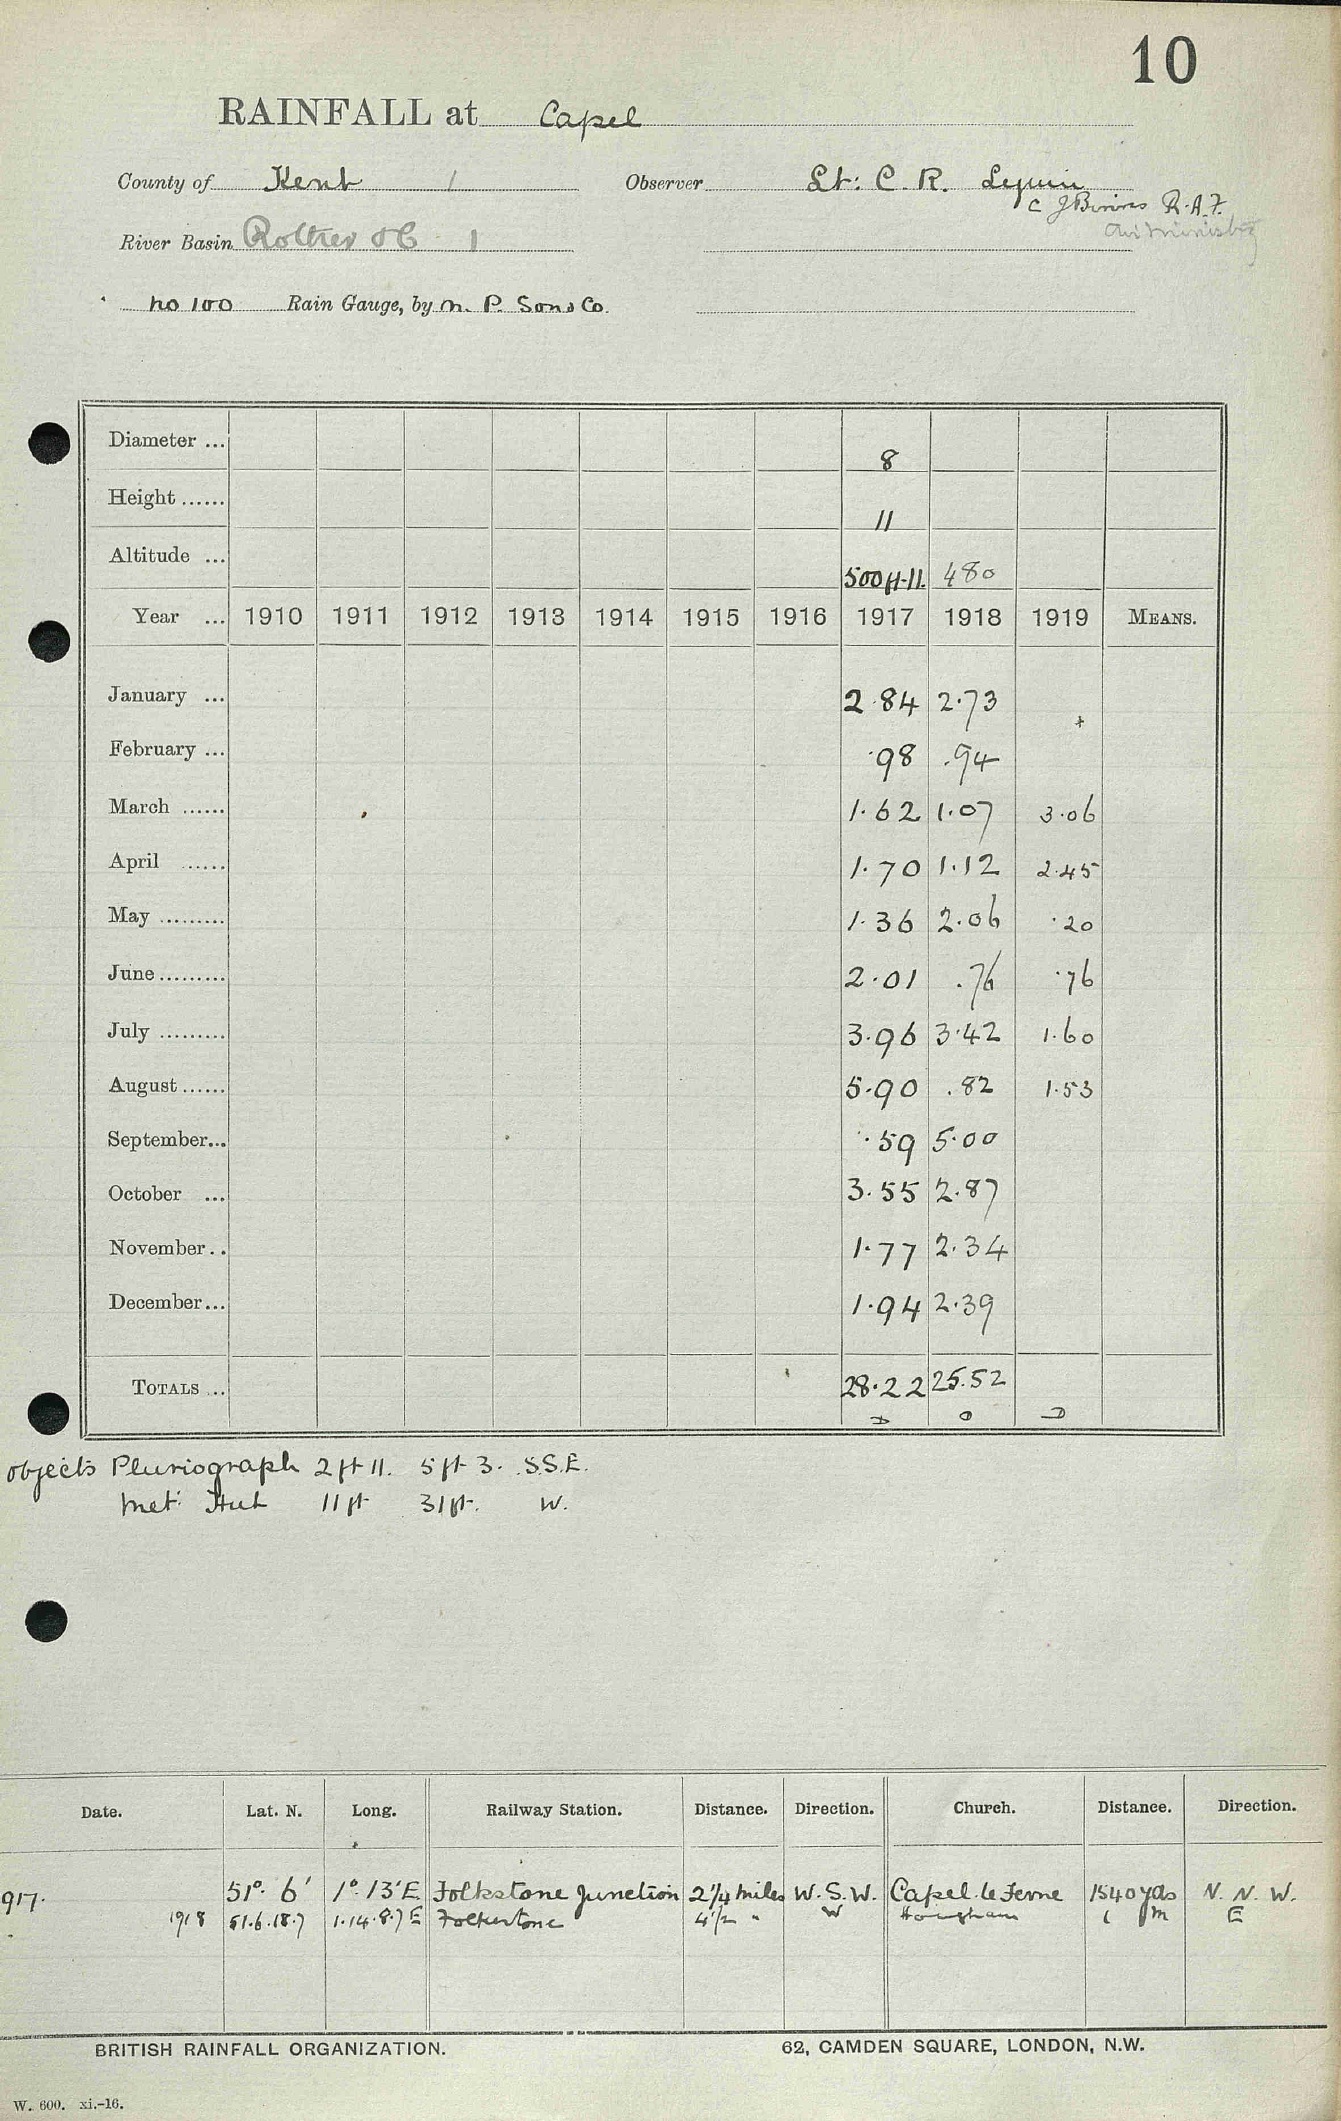 10
RAINFALL at Capel
County of Kent 1 Observer Lt: C. R.
C J Binns R.A.F.
Air Ministry
River Basin Rother &c 1
no 100 Rain Gauge, by N. P. Son & Co.
Diameter ... 8
Height ...... 11
Altitude ... 500ft-11. 480
Year ... 1910 1911 1912 1913 1914 1915 1916 1917 1918 1919 MEANS.
January ... 2.84 2.73
+
February ... .98 .94
March ...... 1.62 1.07 3.06
April ...... 1.70 1.12 2.45
May ......... 1.36 2.06 .20
June ......... 2.01 .76 .76
July ......... 3.96 3.42 1.60
August ...... 5.90 .82 1.53
September... .59 5.00
October ... 3.55 2.87
November.. 1.77 2.34
December... 1.94 2.39
TOTALS ... 28.22 25.52
objects Pluviograph 2ft 11. 5ft 3. S.S.E.
Met: Hut 11ft 31ft. W.
Date. Lat. N. Long. Railway Station. Distance. Direction. Church. Distance. Direction.
917. 51°. 6' 1°.13'E Folkstone Junction 2 1/4 miles W.S.W. Capel le Ferne 1540 yds N.N.W.
1918 51.6.18.7 1.14.8.7 E Folkestone 4 1/2 " W Hougham 1 m E
BRITISH RAINFALL ORGANIZATION. 62, CAMDEN SQUARE, LONDON, N.W.
W. 600. xi.-16.